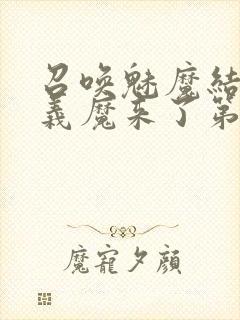 召唤魅魔结
义魔来了第
魔寵夕顔